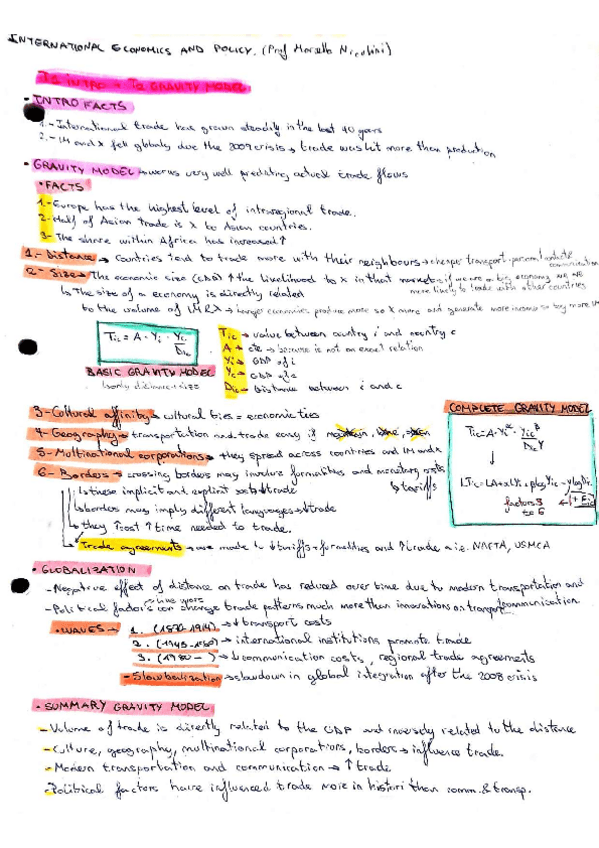 INTERNATIONAL ECONOMICS AND POLICY. (Prof Marcello Nicolini)
T1 INTRO + T2 GRAVITY MODEL
• INTRO FACTS
1.- International trade has grown steadily in the last 40 years
2.- IM and X fell globaly due the 2009 crisis → trade was hit more than production
• GRAVITY MODEL → very well predicting actual trade flows
• FACTS
1.- Europe has the highest level of intraregional trade.
2- Half of Asian trade is X to Asian countries.
3- The share within Africa has increased ↑
1.- Distance → Countries tend to trade more with their neighbours → cheaper transport + personal contacts & communication
2- Size → The economic size (GDP) ↑ the likelihood to X in that market → if we are a big economy we are more likely to trade with other countries
↳ The size of a economy is directly related
to the volume of IM & X → larger economies produce more so X more and generate more income so buy more IM
Tic = A · Yi · Yc / Dic
BASIC GRAVITY MODEL
↳ only distance + size
Tic → value between country i and country c
A → cte → because is not an exact relation
Yi → GDP of i
Yc → GDP of c
Dic → Distance between i and c
3- Cultural affinity → cultural ties = economic ties
4- Geography → transportation and trade easy if
5- Multinational corporations → they spread across countries and IM and X
6- Borders → crossing borders may involve formalities and monetary costs
↳ tariffs
↳ these implicit and explicit costs ↓ trade
↳ borders may imply different languages → ↓ trade
↳ they ↑ cost ↑ time needed to trade.
↳ Trade agreements → are made to ↓ tariffs + formalities and ↑ trade i.e. NAFTA, USMCA
COMPLETE GRAVITY MODEL
factors 3 to 6
• GLOBALIZATION
- Negative effect of distance on trade has reduced over time due to modern transportation and communication.
- Political factors like wars can change trade patterns much more than innovations on transport
• WAVES → 1. (1870-1914) → ↓ transport costs
2. (1945-1980) → international institutions promote trade
3. (1980- ) → ↓ communication costs, regional trade agreements
- Slowbalization → slowdown in global integration after the 2008 crisis
• SUMMARY GRAVITY MODEL
- Volume of trade is directly related to the GDP and inversely related to the distance
- Culture, geography, multinational corporations, borders → influence trade.
- Modern transportation and communication → ↑ trade
- Political factors have influenced trade more in histori than comm. & transp.